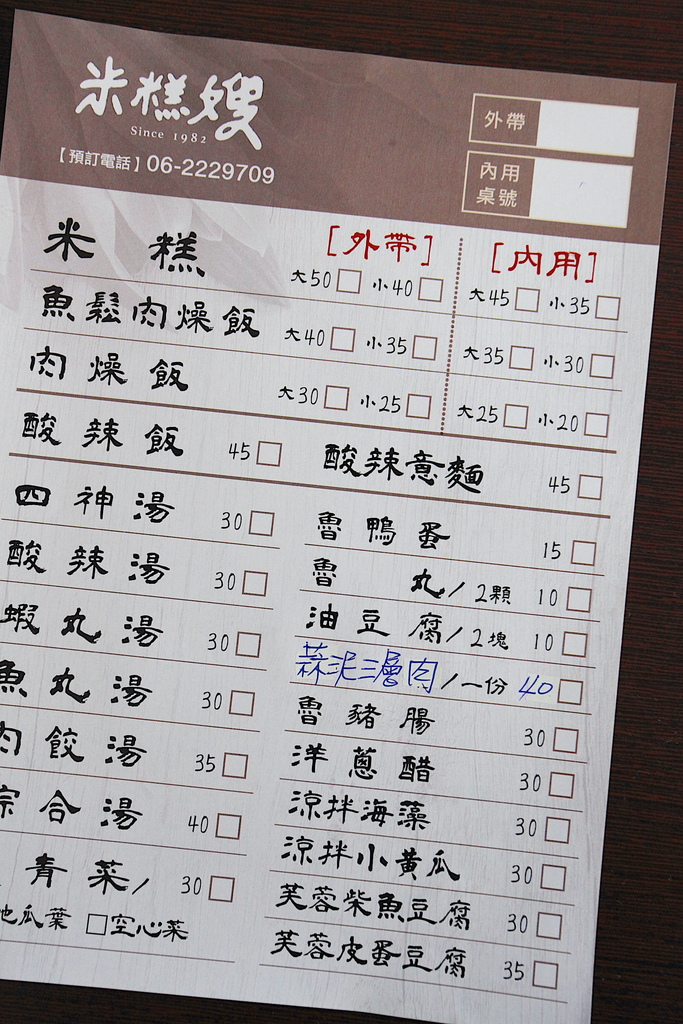 米糕嫂
Since 1982
【預訂電話】06-2229709
外帶
內用
桌號
[外帶] [內用]
米糕 大50 小40 大45 小35
魚鬆肉燥飯 大40 小35 大35 小30
肉燥飯 大30 小25 大25 小20
酸辣飯 45 酸辣意麵 45
四神湯 30 魯鴨蛋 15
酸辣湯 30 魯丸/2顆 10
蝦丸湯 30 油豆腐/2塊 10
魚丸湯 30 蒜泥三層肉/一份 40
肉餃湯 35 魯豬腸 30
綜合湯 40 洋蔥醋 30
青菜/ 30 涼拌海藻 30
地瓜葉 □空心菜 涼拌小黃瓜 30
芙蓉柴魚豆腐 30
芙蓉皮蛋豆腐 35